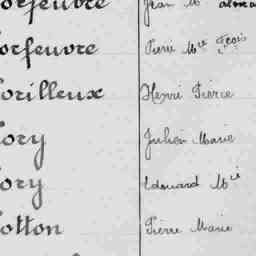 orfeuvre Jean M
orfeuvre Pierre Mie Fçois
orilleux Henri Pierre
ory Julien Marie
ory Edouard Mie
otton Pierre Marie